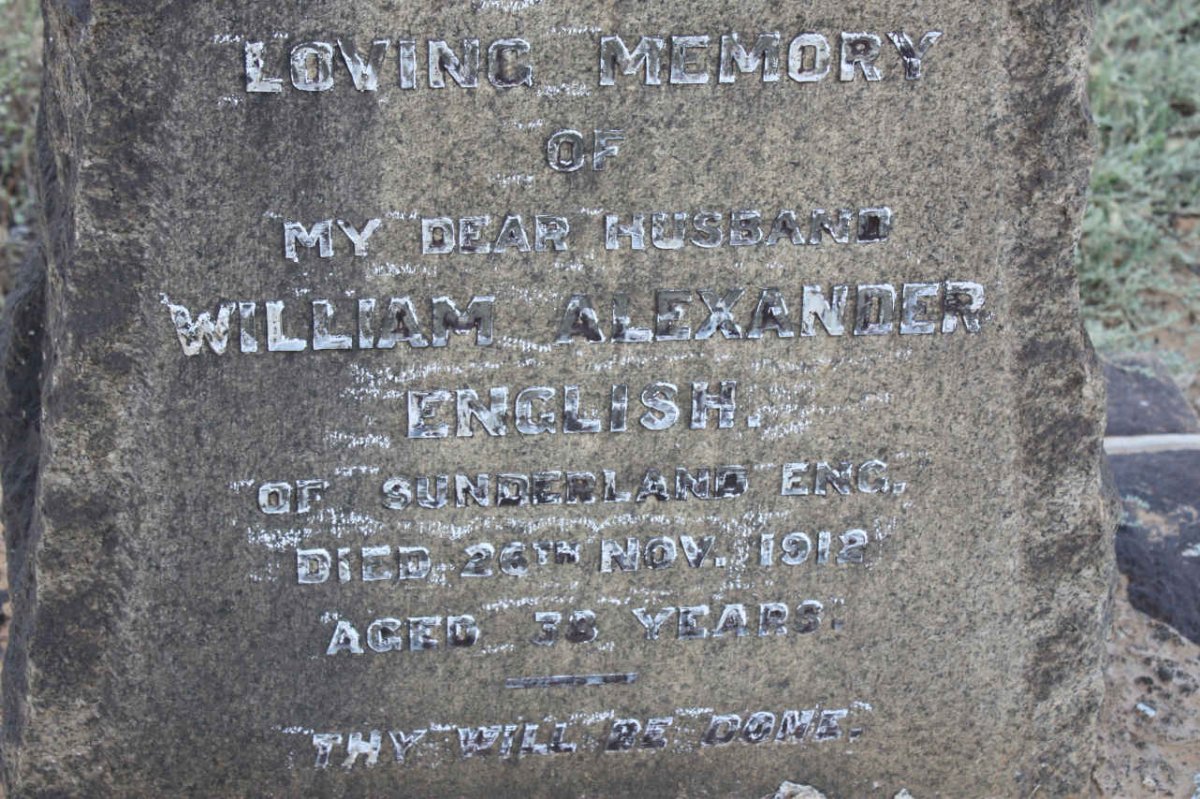 LOVING MEMORY
OF
MY DEAR HUSBAND
WILLIAM ALEXANDER
ENGLISH.
OF SUNDERLAND ENG.
DIED 26TH NOV. 1912
AGED 38 YEARS.
THY WILL BE DONE.